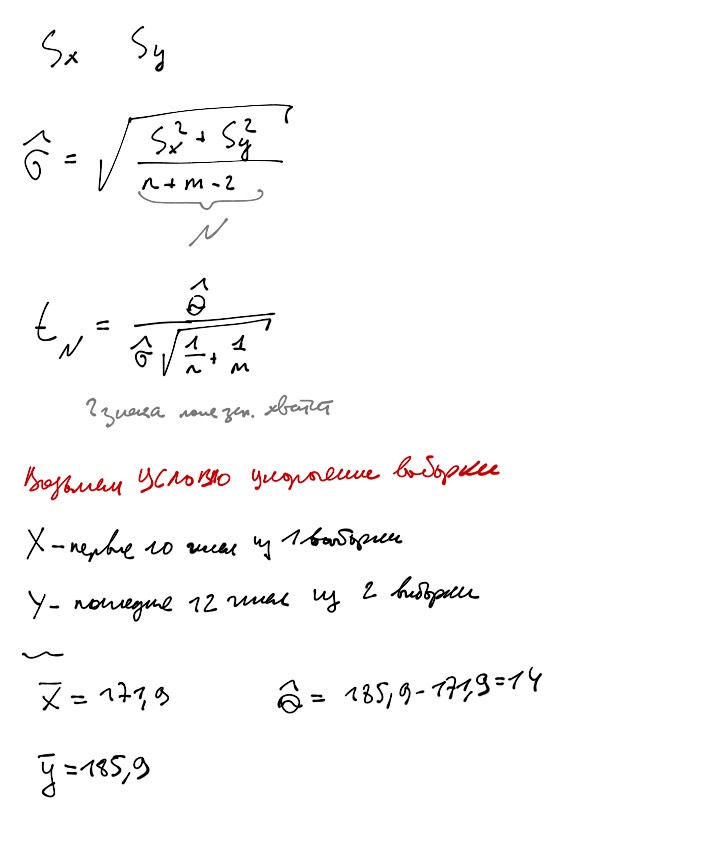 Sx Sy
σ̂ = √((Sx² + Sy²)/(n + m - 2))
N
t_N = θ̂/(σ̂ √(1/n + 1/m))
2 знака после зап. хватит
Возьмем условно укороченные выборки
X - первые 10 чисел из 1 выборки
Y - последние 12 чисел из 2 выборки
x̄ = 171,9 θ̂ = 185,9 - 171,9 = 14
ȳ = 185,9